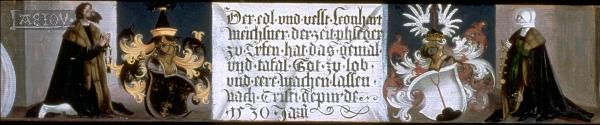 ÆTOV
Der edl vnd vesst Leonhart
Meichsner der zeyt phleger
zu Erfen hat das gemal
vnd tafal Got zu lob
vnd eere machen lassen
nach Cristi gepurde
1530 Jar